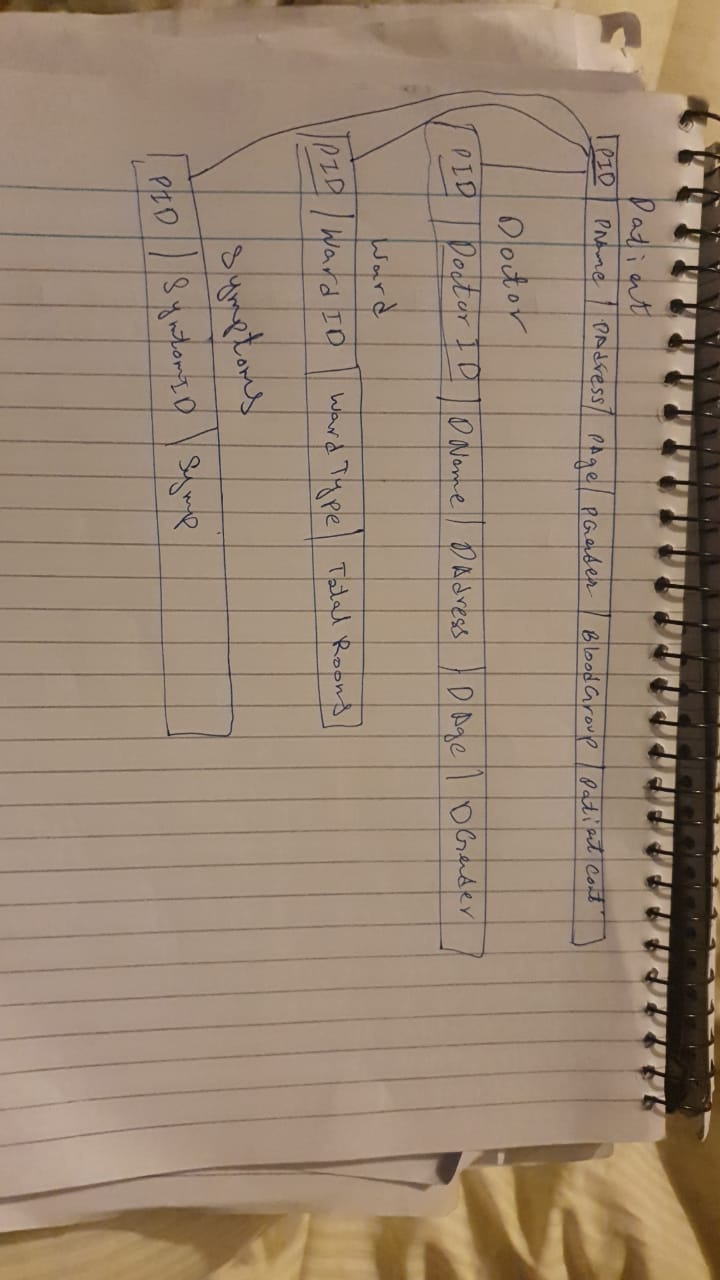 Patient
PID PName PAdress PAge PGender BloodGroup Patient Cont
Doctor
PID Doctor ID DName DAdress DAge DGender
Ward
PID Ward ID Ward Type Total Rooms
Symptoms
PID SymtomID Symp